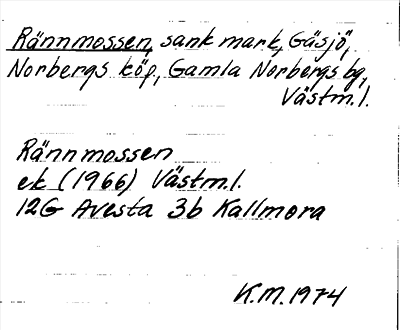 Rännmossen, sank mark, Gäsjö,
Norbergs köp, Gamla Norbergs bg,
Västm. l.
Rännmossen
ek (1966) Västm. l.
12G Avesta 3b Kallmora
K.M. 1974